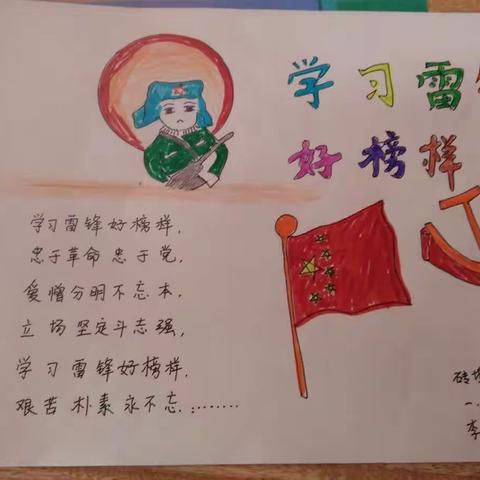 学习雷
好榜样
学习雷锋好榜样,
忠于革命忠于党,
爱憎分明不忘本,
立场坚定斗志强,
学习雷锋好榜样,
艰苦朴素永不忘.........
砖
一.
李